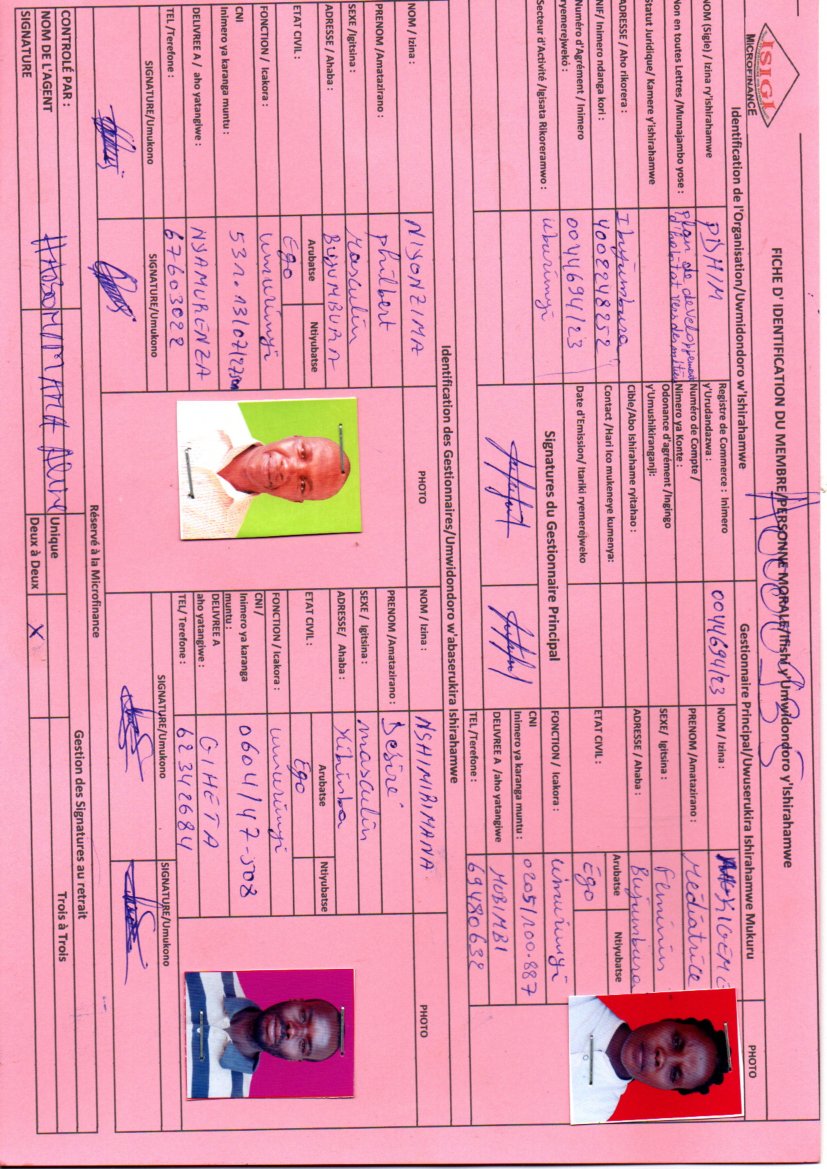 ISIGI
MICROFINANCE
FICHE D' IDENTIFICATION DU MEMBRE/PERSONNE MORALE/Ifishi y'Umwidondoro y'Ishirahamwe
Identification de l'Organisation/Uwmidondoro w'Ishirahamwe
Gestionnaire Principal/Uwuserukira Ishirahamwe Mukuru
PHOTO
NOM (Sigle) / Izina ry'ishirahamwe
PDHIM
Registre de Commerce : Inimero y'Urudandazwa :
0044694/23
NOM / Izina :
Non en toutes Lettres /Mumajambo yose :
plan de developpement
d'habitat
Numéro de Compte /
Nimero ya Konte :
PRENOM /Amatazirano :
Médiatrice
Statut Juridique/ Kamere y'ishirahamwe
Odonance d'agrément /Ingingo
y'Umushikiranganji:
SEXE/ Igitsina :
Féminin
ADRESSE / Aho rikorera :
Bujumbura
Cible/Abo Ishirahame ryitaho :
ADRESSE / Ahaba :
Bujumbura
NIF/ Inimero ndanga kori :
4002248252
Contact /Hari ico mukeneye kumenya:
ETAT CIVIL :
Arubatse
Ntiyubatse
Ego
Numéro d'Agrément / Inimero
ryemerejwekó :
0044694/23
Date d'Emission/ Itariki ryemerejweko
Secteur d'Activité /Igisata Rikoreramwo :
uburimyi
Signatures du Gestionnaire Principal
FONCTION / Icakora :
Umurimyi
CNI
Inimero ya karanga muntu :
0205/100.887
DELIVREE A /aho yatangiwe
MUBIMBI
TEL /Terefone :
69480632
Identification des Gestionnaires/Umwidondoro w'abaserukira Ishirahamwe
NOM / Izina :
NIYONZIMA
PHOTO
NOM / Izina :
NSHIMIRIMANA
PHOTO
PRENOM /Amatazirano :
philbert
PRENOM /Amatazirano :
Désiré
SEXE /Igitsina :
Masculin
SEXE / Igitsina :
masculin
ADRESSE / Ahaba :
BUJUMBURA
ADRESSE/ Ahaba :
Kibimba
ETAT CIVIL :
Arubatse
Ntiyubatse
Ego
ETAT CIVIL :
Arubatse
Ntiyubatse
Ego
FONCTION / Icakora :
Umurimyi
FONCTION / Icakora :
umurimyi
CNI
Inimero ya karanga muntu :
CNI /
Inimero ya karanga
muntu :
0604/147-508
DELIVREE A / aho yatangiwe :
NYAMURENZA
DELIVREE A
aho yatangiwe :
GIHETA
TEL /Terefone :
67603022
TEL/ Terefone :
62342684
SIGNATURE/Umukono
SIGNATURE/Umukono
SIGNATURE/Umukono
SIGNATURE/Umukono
Réservé à la Microfinance
CONTROLÉ PAR :
NOM DE L'AGENT
SIGNATURE
Gestion des Signatures au retrait
Unique
Deux à Deux
X
Trois à Trois